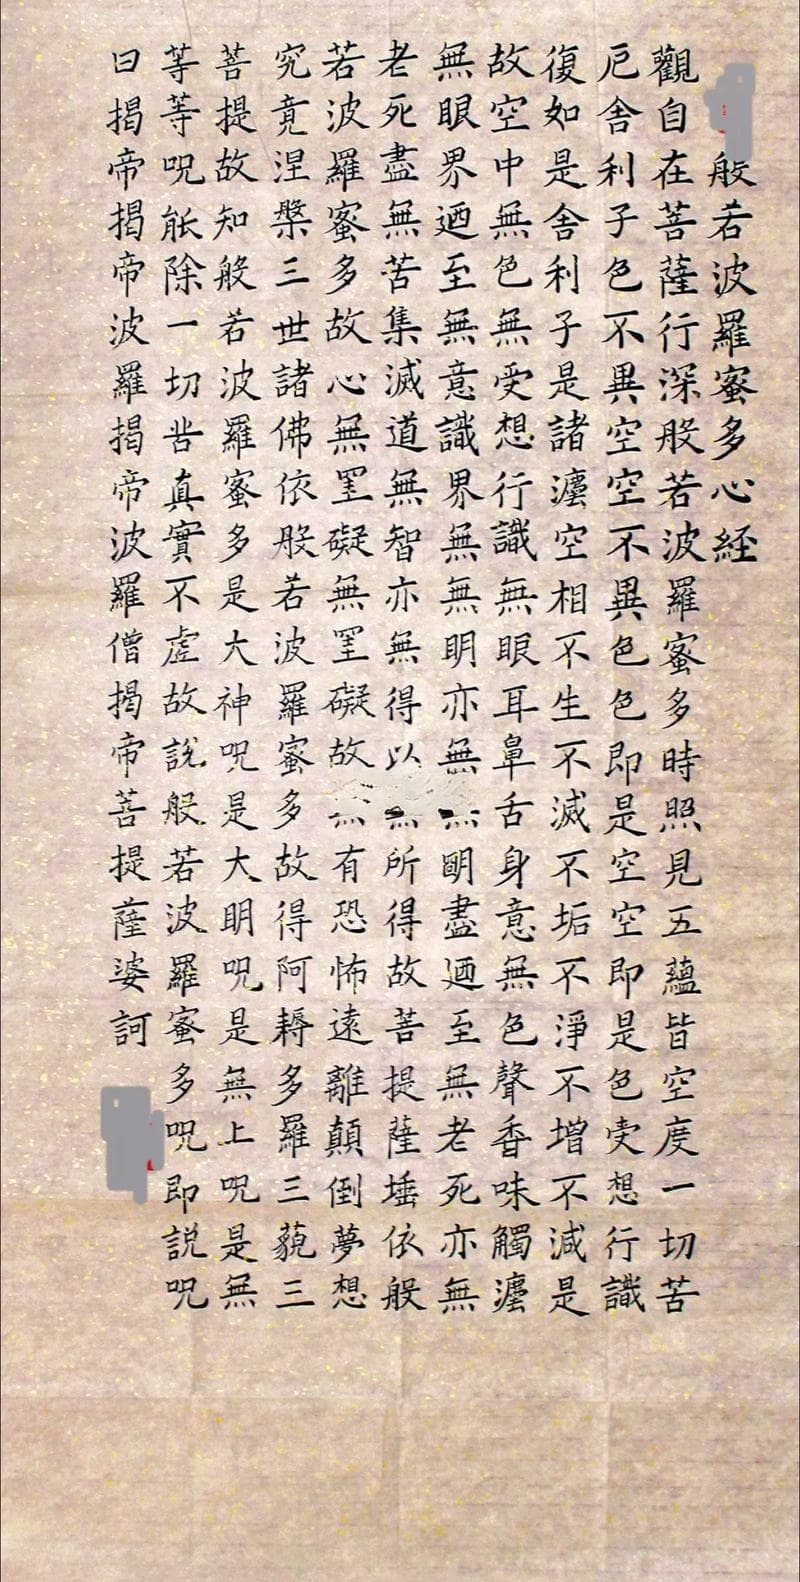 般若波羅蜜多心経
觀自在菩薩行深般若波羅蜜多時照見五蘊皆空度一切苦
厄舍利子色不異空空不異色色即是空空即是色受想行識
復如是舍利子是諸灋空相不生不滅不垢不淨不增不減是
故空中無色無受想行識無眼耳鼻舌身意無色聲香味觸灋
無眼界迺至無意識界無無明亦無無明盡迺至無老死亦無
老死盡無苦集滅道無智亦無得以無所得故菩提薩埵依般
若波羅蜜多故心無罣礙無罣礙故無有恐怖遠離顛倒夢想
究竟涅槃三世諸佛依般若波羅蜜多故得阿耨多羅三藐三
菩提故知般若波羅蜜多是大神呪是大明呪是無上呪是無
等等呪能除一切苦真實不虛故說般若波羅蜜多呪即說呪
曰揭帝揭帝波羅揭帝波羅僧揭帝菩提薩婆訶